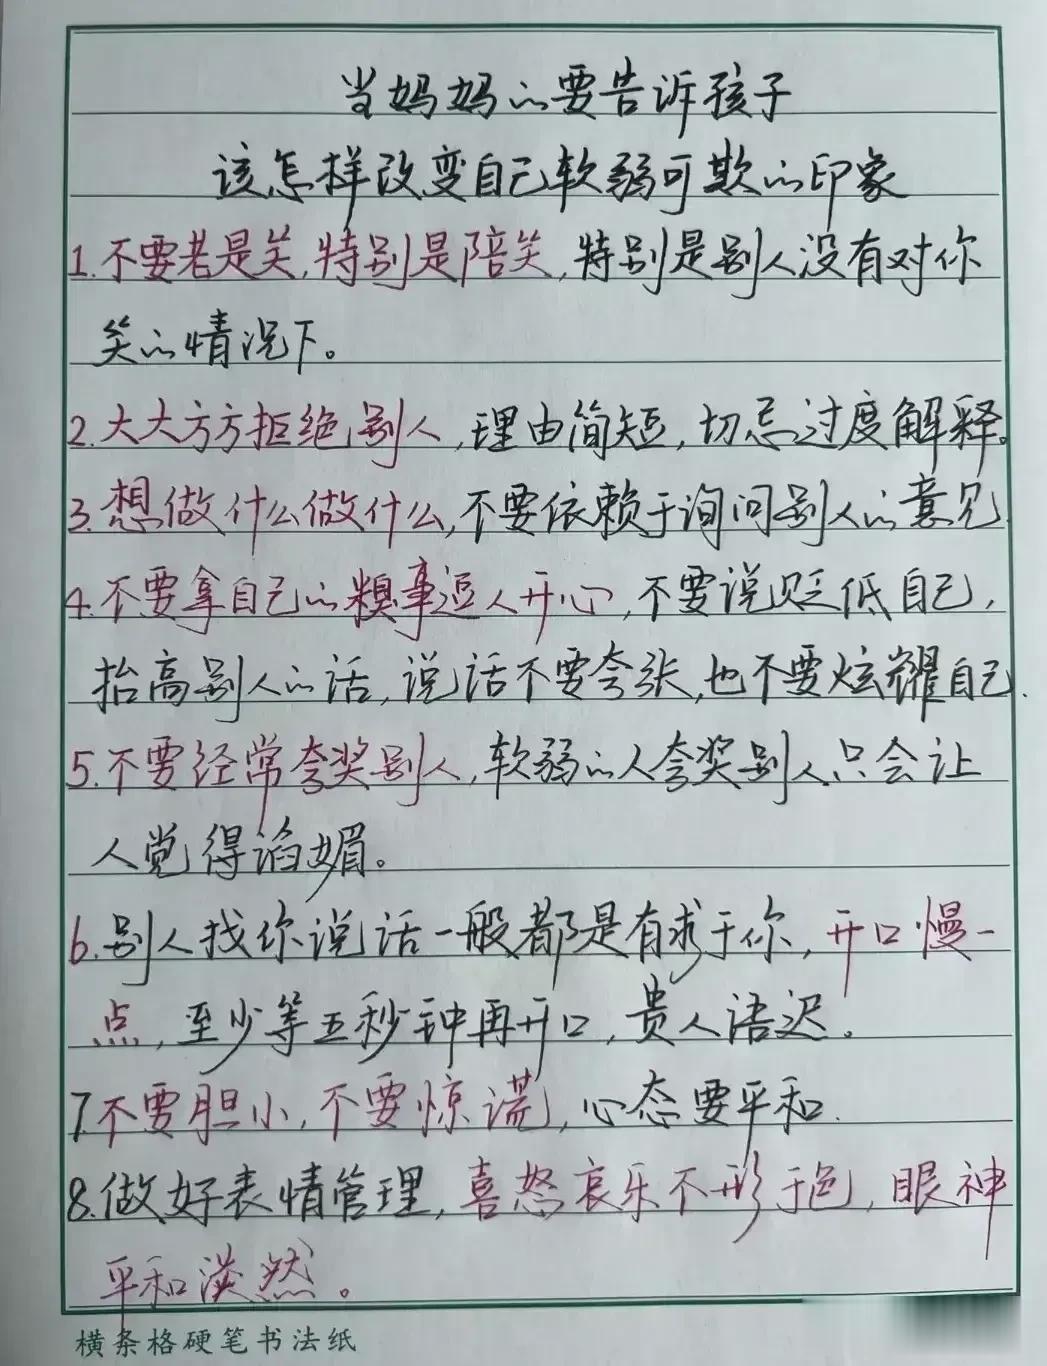 当妈妈的要告诉孩子
该怎样改变自己软弱可欺的印象
1.不要老是笑,特别是陪笑,特别是别人没有对你
笑的情况下。
2.大大方方拒绝别人,理由简短,切忌过度解释。
3.想做什么做什么,不要依赖于询问别人的意见.
4.不要拿自己的糗事逗人开心,不要说贬低自己,
抬高别人的话,说话不要夸张,也不要炫耀自己.
5.不要经常夸奖别人,软弱的人夸奖别人只会让
人觉得谄媚。
6.别人找你说话一般都是有求于你,开口慢一
点,至少等五秒钟再开口,贵人语迟。
7.不要胆小,不要惊谎,心态要平和.
8.做好表情管理,喜怒哀乐不形于色,眼神
平和淡然。
横条格硬笔书法纸